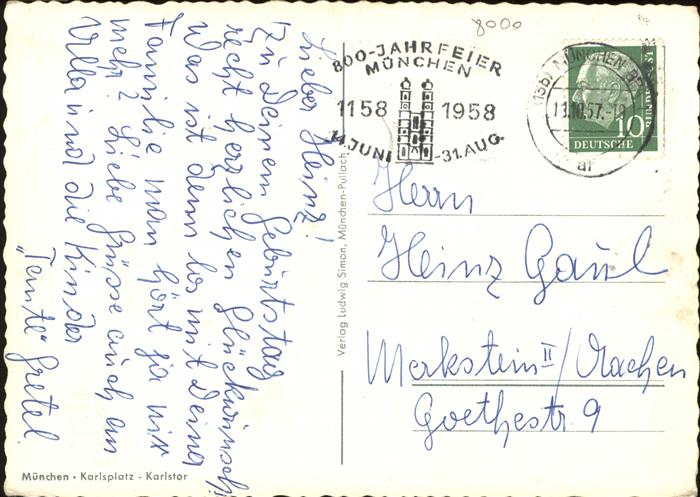 Lieber Heinz!
Zu Deinem Geburtstag
recht herzlichen Glückwunsch
Was ist denn los mit Deiner
Familie man hört ja nix
mehr? Liebe Grüsse auch an
Ulla und die Kinder
"Tante" Gretel
8000
800-JAHRFEIER
MÜNCHEN
1158 1958
14. JUNI - 31. AUG.
(13b) MÜNCHEN
11.10.57.-18
ar
10
DEUTSCHE
Herrn
Heinz Gaul
Merkstein II / Aachen
Goethestr. 9
Verlag Ludwig Simon, München-Pullach
München · Karlsplatz - Karlstor